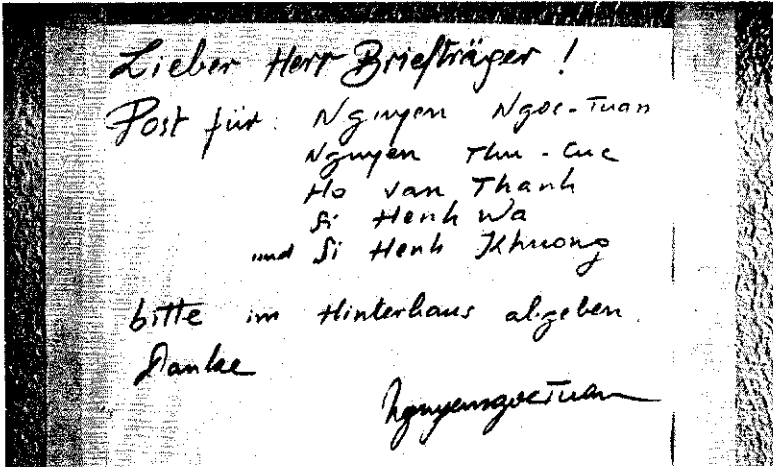 Lieber Herr Briefträger!
Post für: Nguyen Ngoc-Tuan
Nguyen Thu-Cuc
Ho van Thanh
Si Henh Wa
und Si Henh Khuong
bitte im Hinterhaus abgeben.
Danke
Nguyenngoctuan